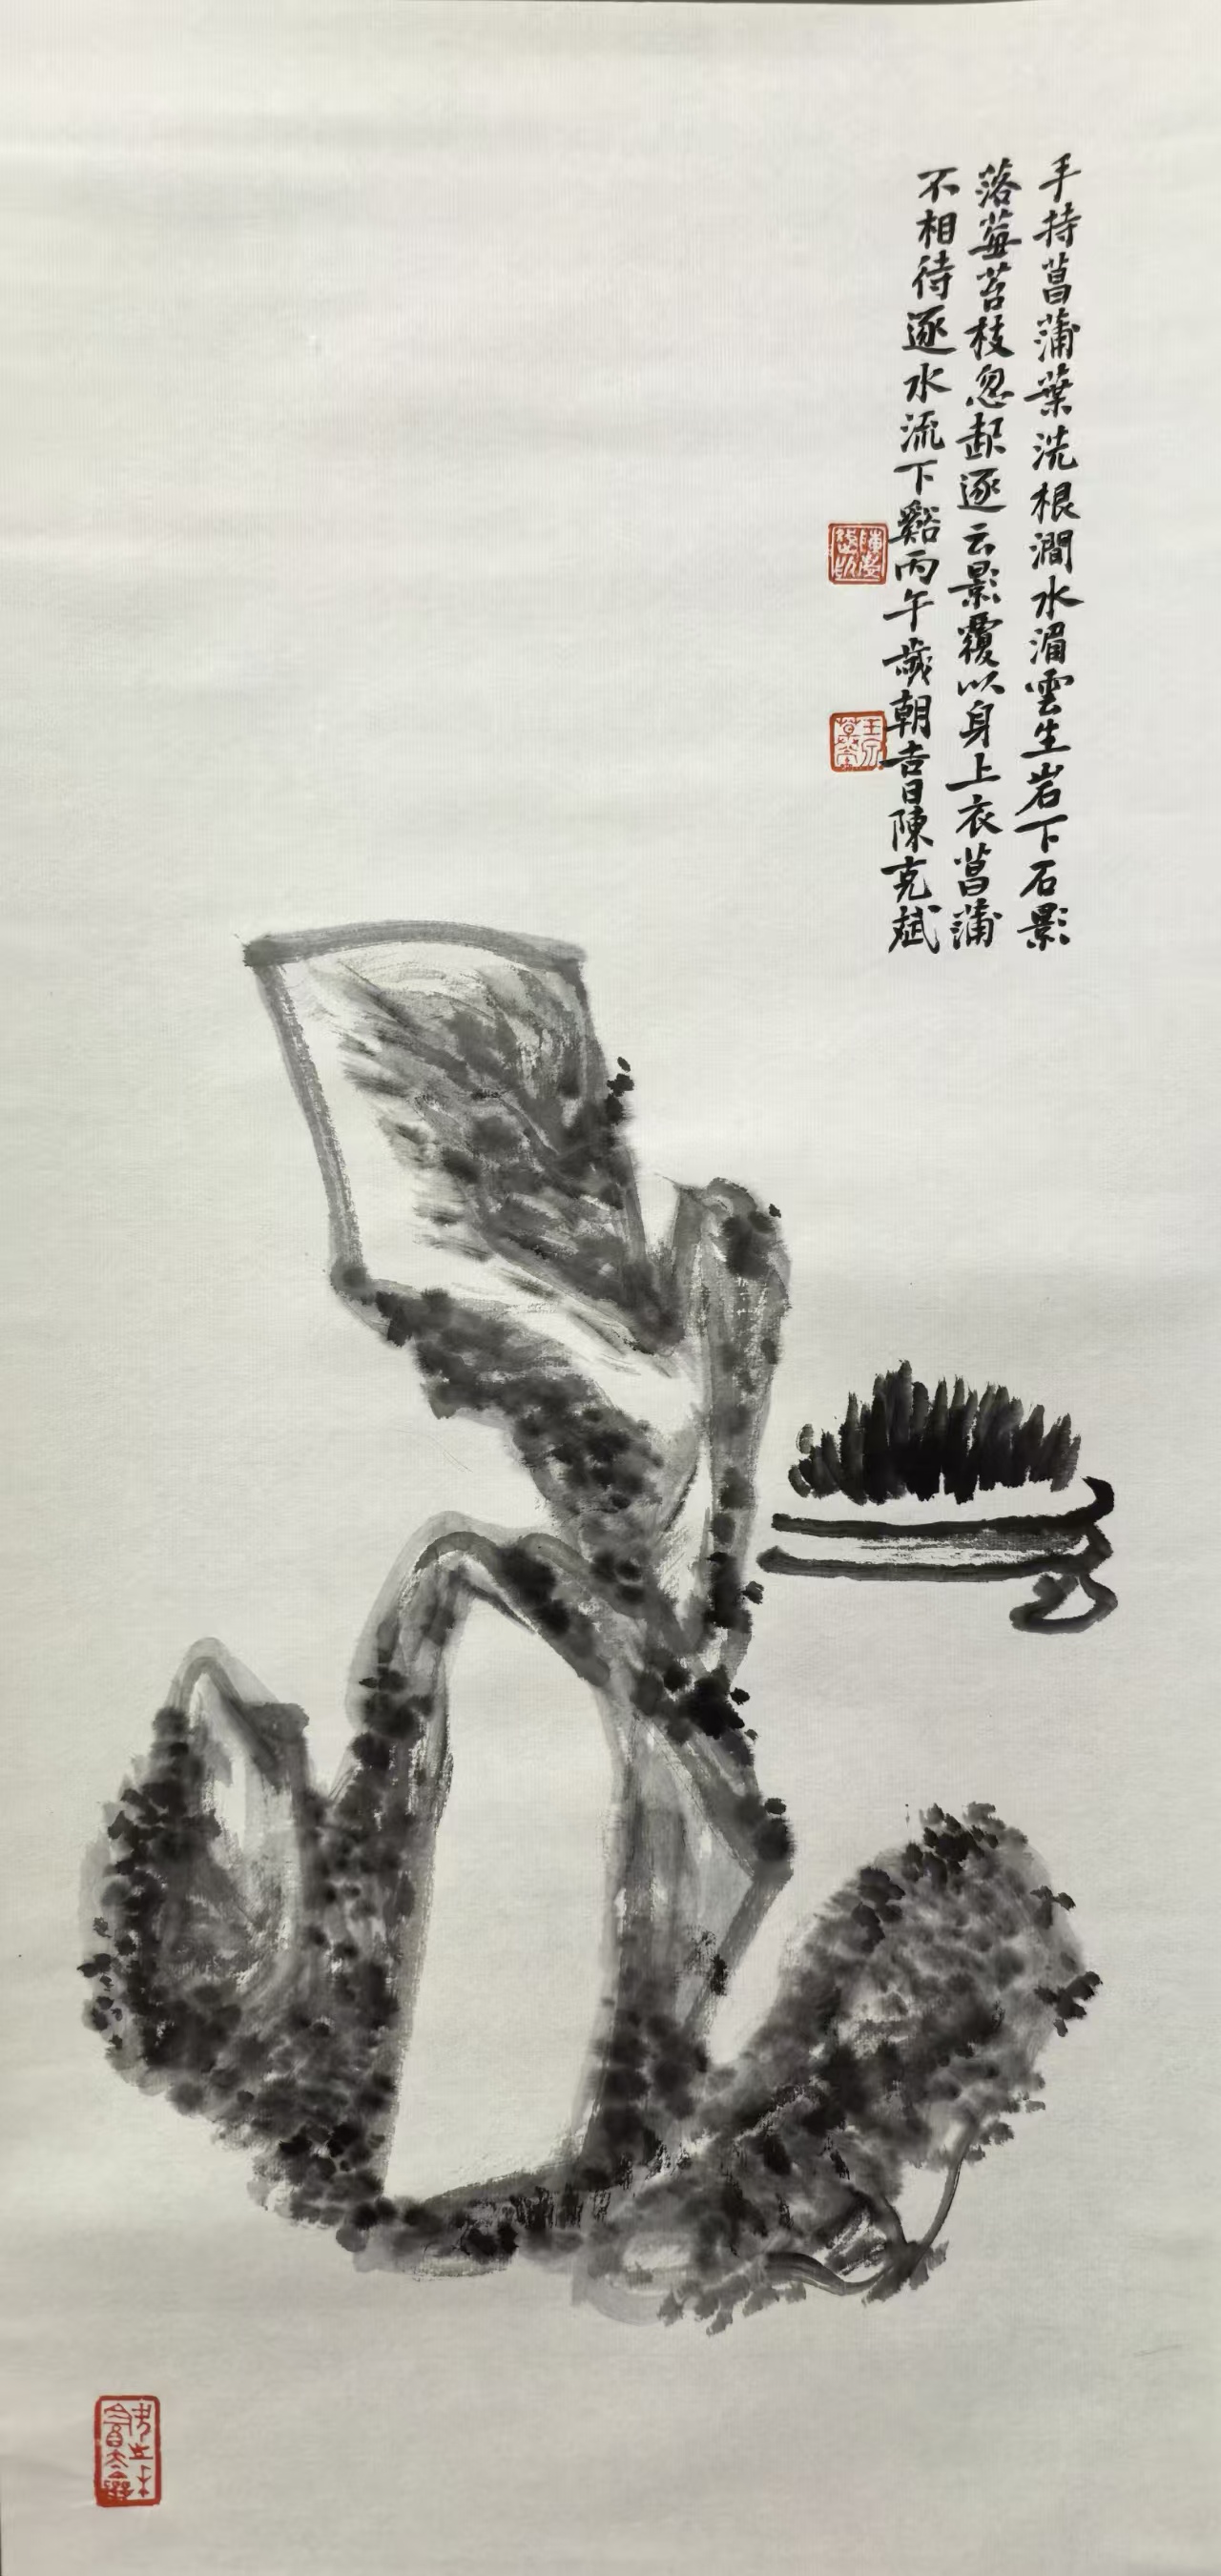 手持菖蒲葉洗根澗水湄雲生岩下石影
落莓苔枝忽起逐云影覆以身上衣菖蒲
不相待逐水流下谿丙午歲朝吉日陳克斌